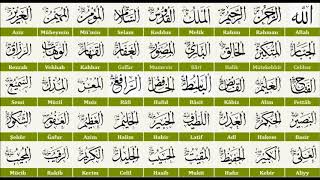 الله الرحمن الرحيم الملك القدوس السلام المؤمن المهيمن العزيز
Aziz Müheymin Mü'min Selam Kuddus Melik Rahim Rahman Allah
الجبار المتكبر الخالق البارئ المصور الغفار القهار الوهاب الرزاق
Rezzak Vehhab Kahhar Gaffar Musavvir Bâri Halik Mütekebbir Cebbar
الفتاح العليم القابض الباسط الخافض الرافع المعز المذل السميع
Semi Müzil Muiz Râfi Hafid Bâsit Kâbiz Alim Fettah
البصير الحكم العدل اللطيف الخبير الحليم العظيم الغفور الشكور
Şekür Gafur Azim Halim Habir Latif Adl Hakem Basir
العلي الكبير الحفيظ المقيت الحسيب الجليل الكريم الرقيب المجيب
Mücib Rakib Kerim Celil Hasib Mukit Hafiz Kebir Aliyy